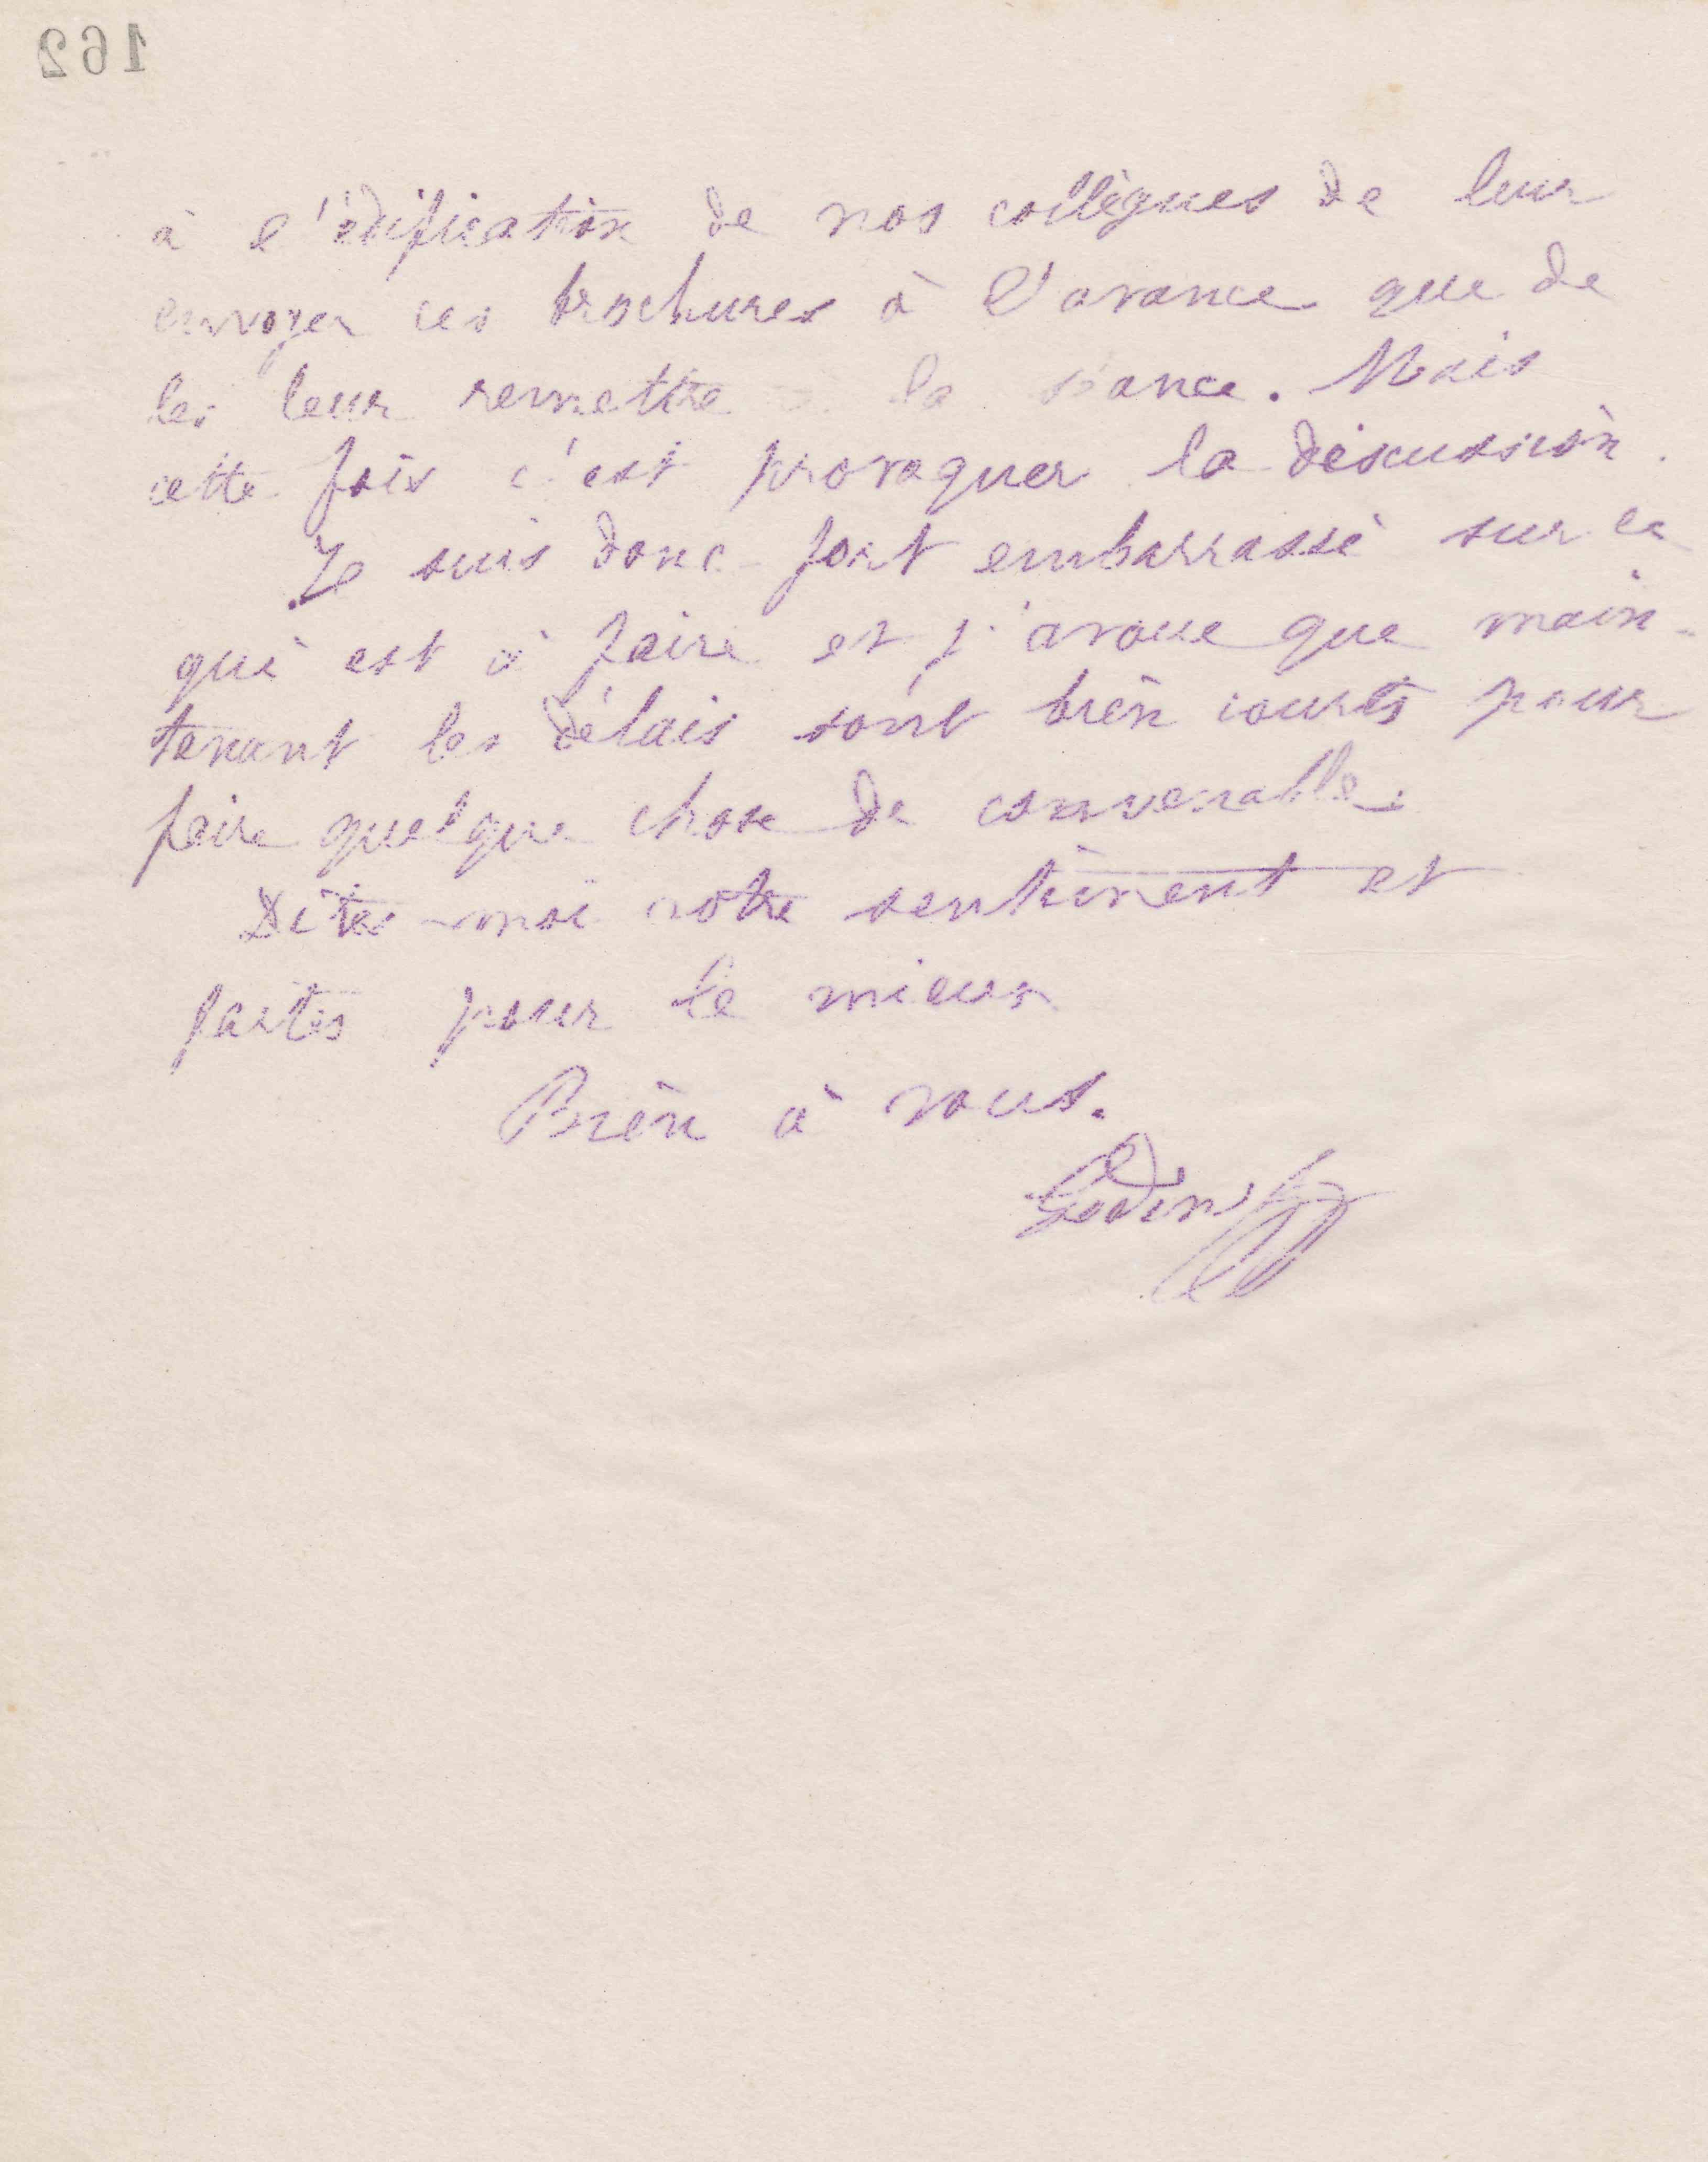 162
à l'édification de nos collègues de leur
envoyer ces brochures à l'avance que de
les leur remettre à la séance. Mais
cette fois c'est provoquer la discussion.
Je suis donc fort embarrassé sur ce
qui est à faire et j'avoue que main-
tenant les délais sont bien courts pour
faire quelque chose de convenable.
Dites-moi votre sentiment et
faites pour le mieux
Bien à vous.
Godin